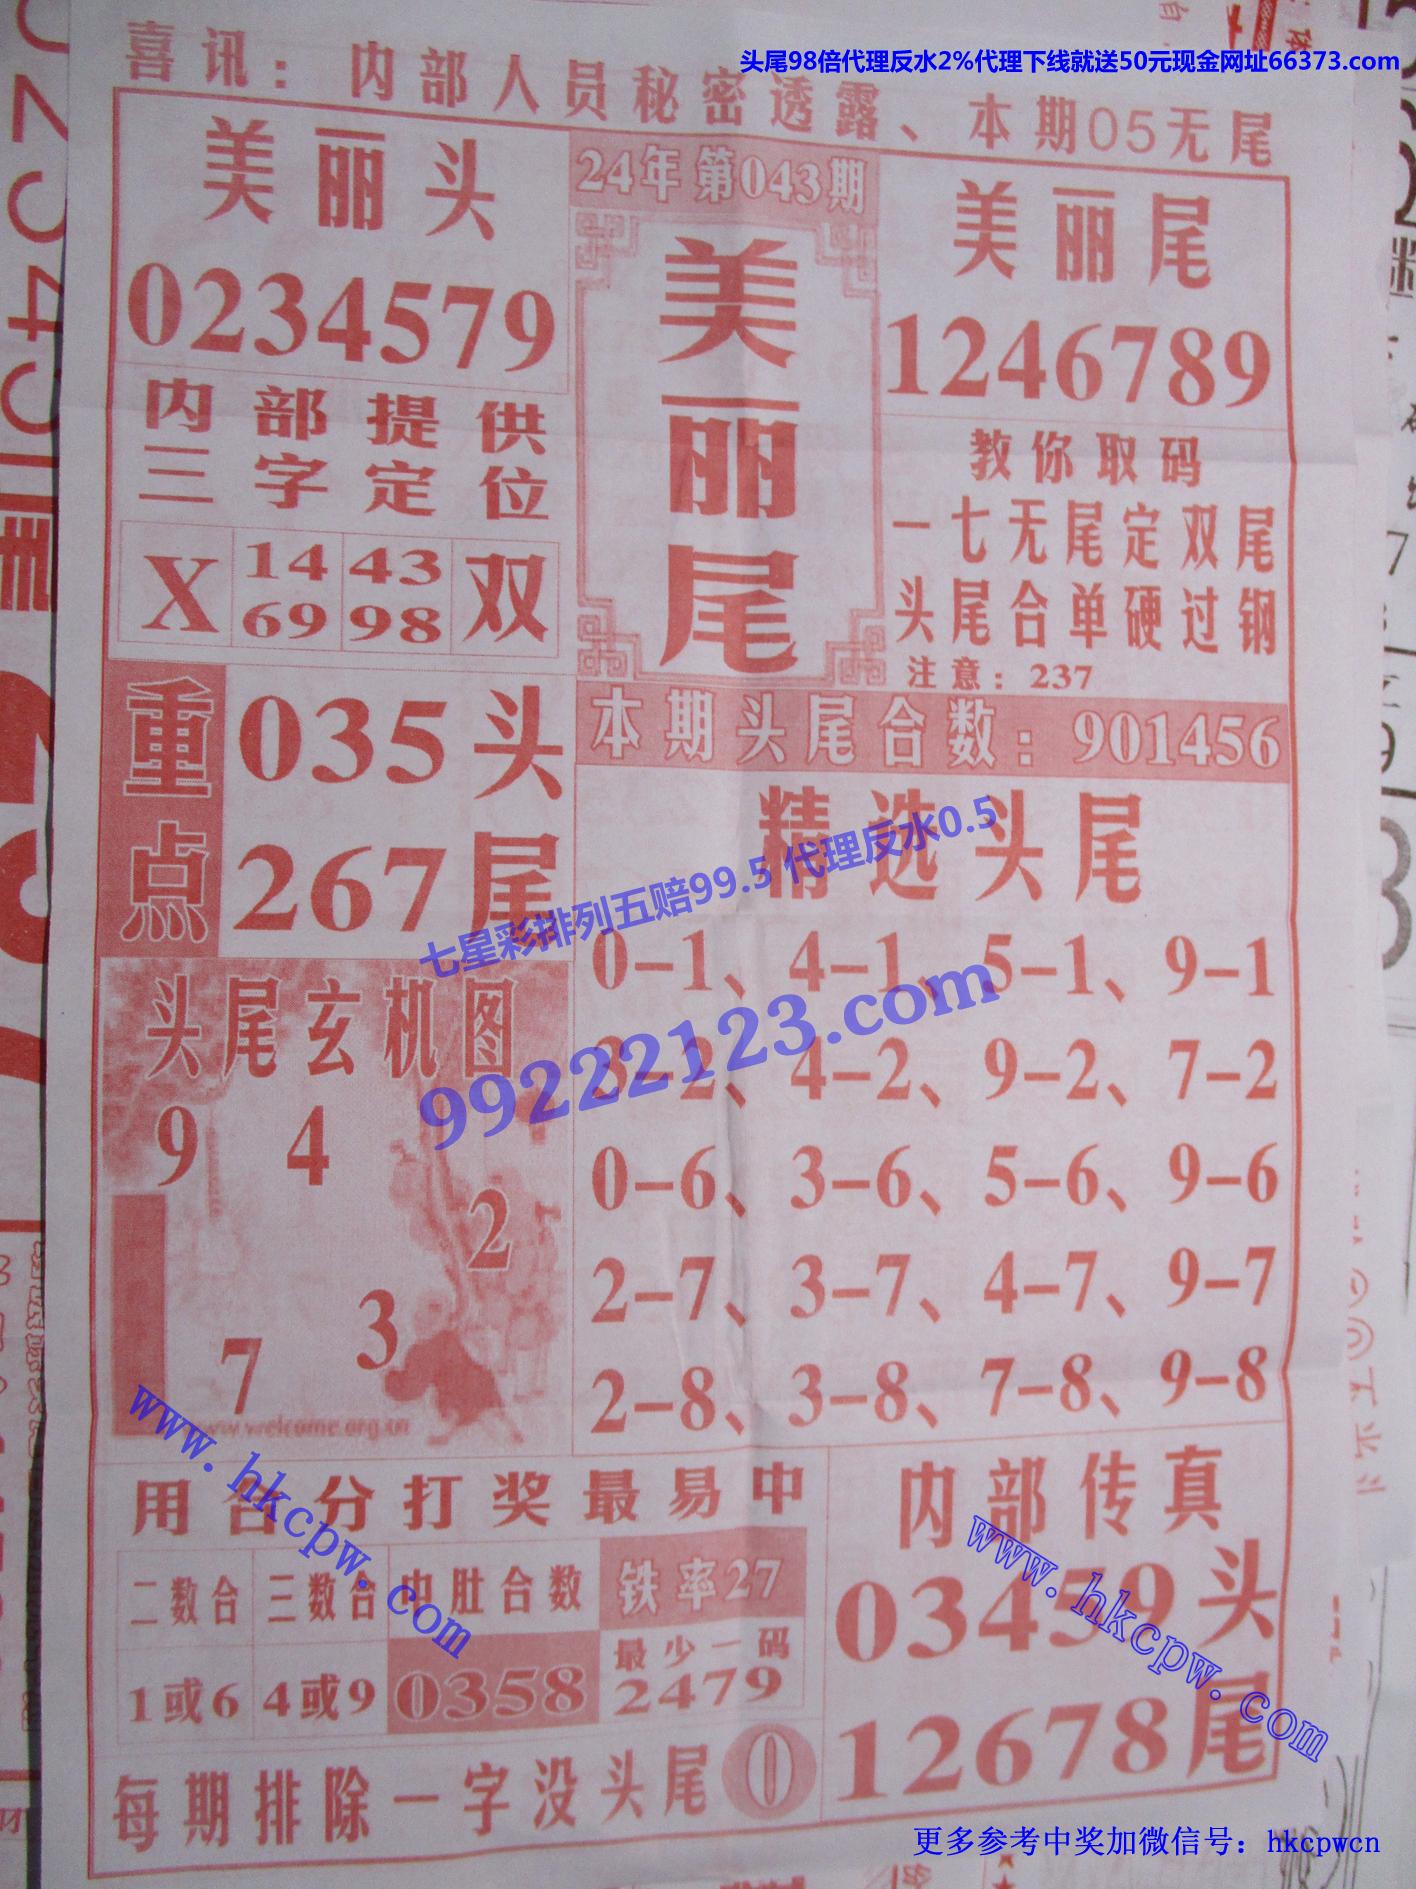 头尾98倍代理反水2%代理下线就送50元现金网址66373.com
喜讯：内部人员秘密透露、本期05无尾
美丽头
0234579
24年第043期
美丽尾
美丽尾
1246789
内部提供
三字定位
X 14 43 双
69 98
教你取码
一七无尾定双尾
头尾合单硬过钢
注意：237
重点
035头
267尾
本期头尾合数：901456
精选头尾
0-1、4-1、5-1、9-1
3-2、4-2、9-2、7-2
0-6、3-6、5-6、9-6
2-7、3-7、4-7、9-7
2-8、3-8、7-8、9-8
七星彩排列五赔99.5 代理反水0.5
99222123.com
头尾玄机图
9 4
2
3
7
www.welcome.org.cn
www.hkcpw.com
用合分打奖最易中
二数合 三数合 中肚合数 铁率27
1或6 4或9 0358 最少一码
2479
每期排除一字没头尾 0
内部传真
03459头
12678尾
www.hkcpw.com
更多参考中奖加微信号：hkcpwcn